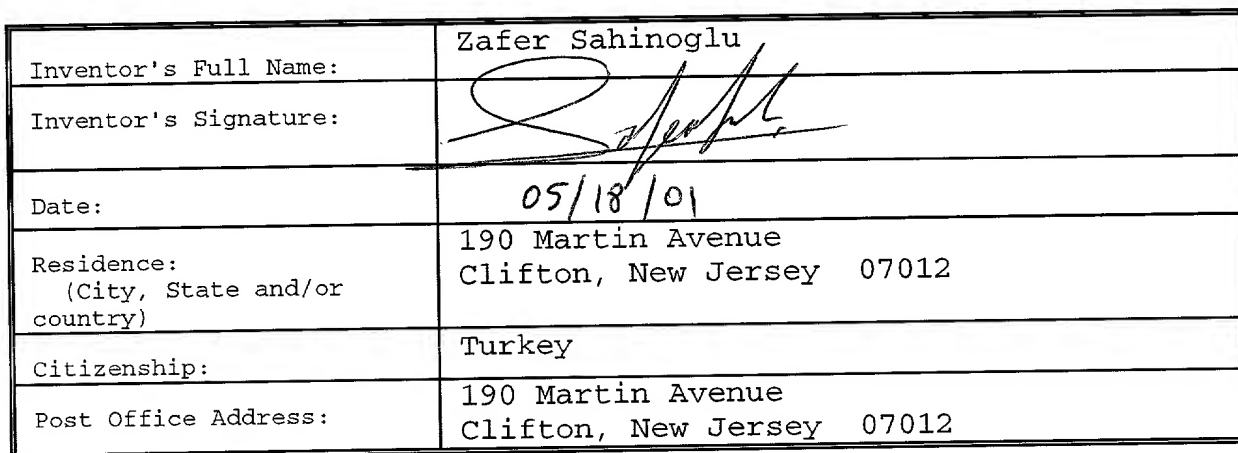 Inventor's Full Name: Zafer Sahinoglu
Inventor's Signature:
Date: 05/18/01
Residence:
(City, State and/or
country)
190 Martin Avenue
Clifton, New Jersey 07012
Citizenship: Turkey
Post Office Address:
190 Martin Avenue
Clifton, New Jersey 07012